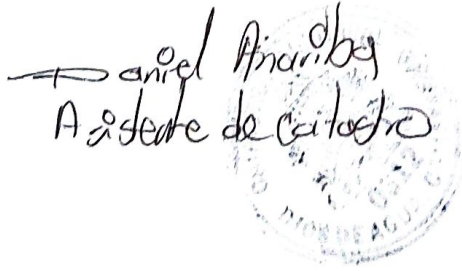 Daniel Anariba
Asistente de Catastro